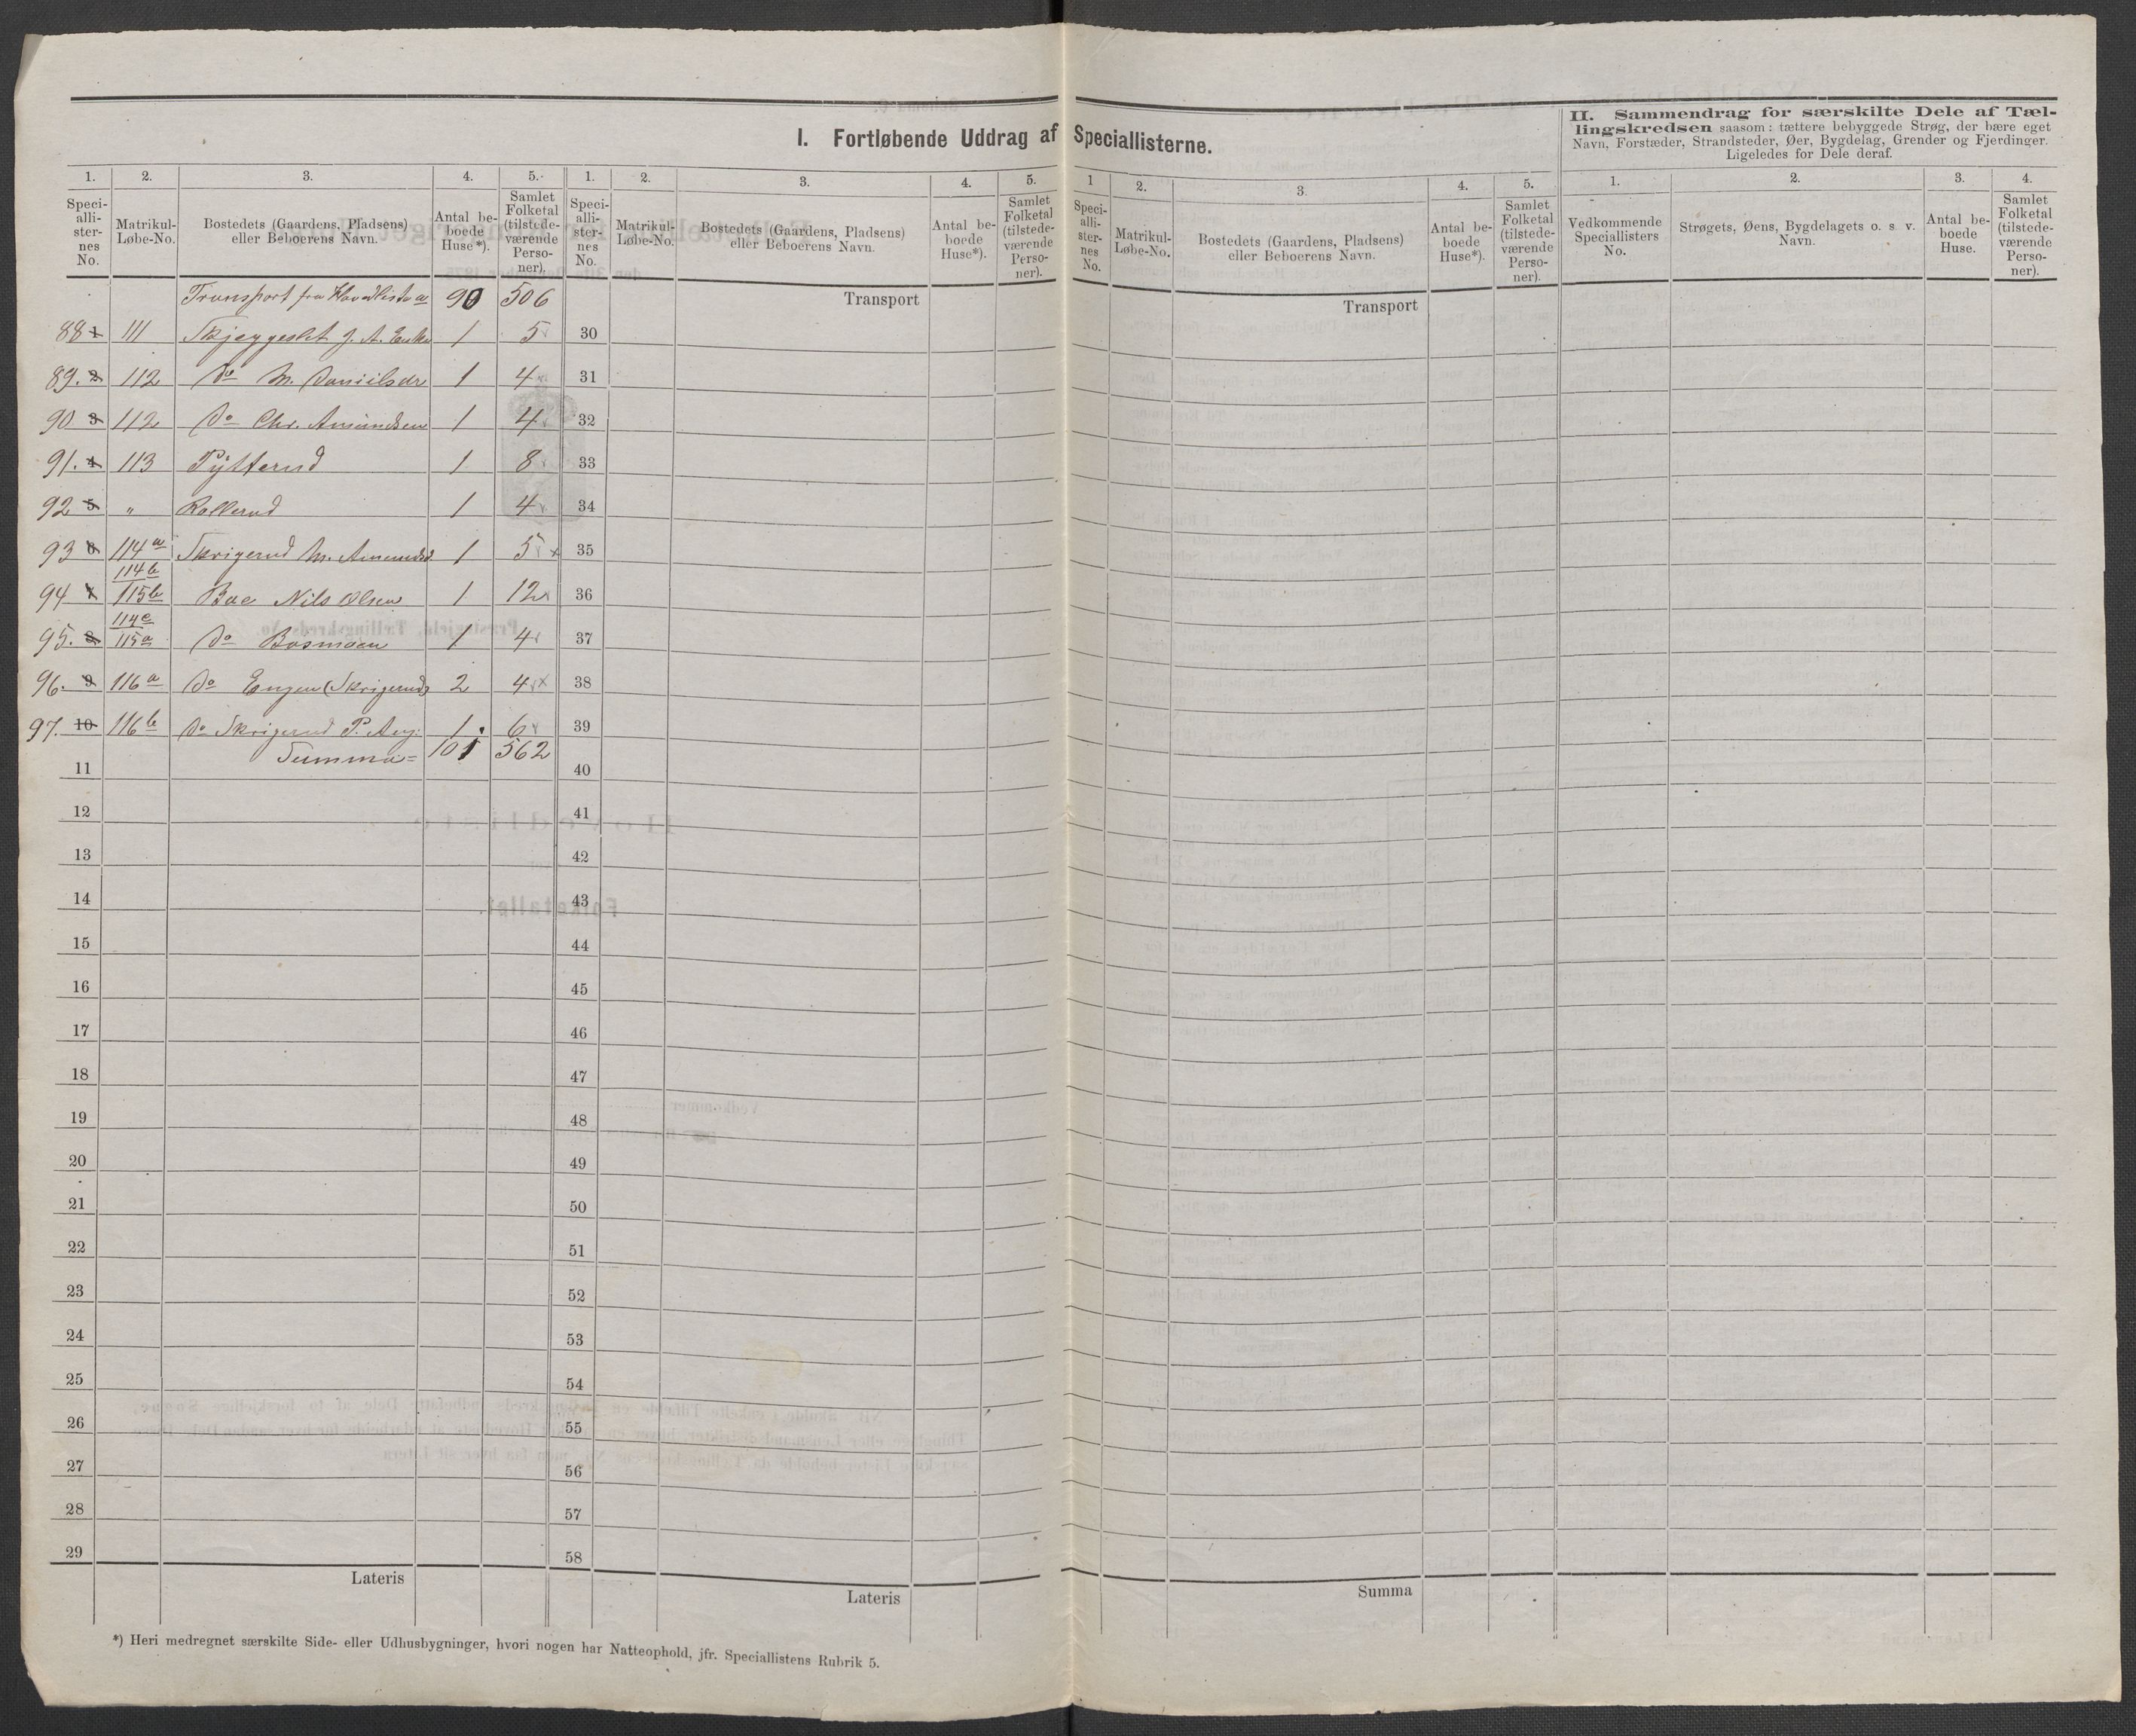 I. Fortløbende Uddrag af Speciallisterne.
1. Specialli-sternes No.
2. Matrikul-Løbe-No.
3. Bostedets (Gaardens, Pladsens) eller Beboerens Navn.
4. Antal beboede Huse*).
5. Samlet Folketal (tilstedeværende Personer).
Transport fra Hovedliste a 90 506
88 1 111 Skjeggeslet J. A. Enke 1 5
89. 2 112 Do M. Danielsdr 1 4
90 3 112 Do Chr. Amundsen 1 4
91. 4 113 Pytterud 1 8
92 5 " Rollerud 1 4
93 6 114a Skrigerud M. Amundsd. 1 5 x
94 7 114b 115b Bae Nils Olsen 1 12
95. 8 114c 115a Do Bosmoen 1 4
96. 9 116a Do Engen (Skrigerud) 2 4 x
97. 10 116b Do Skrigerud P. Aug: 1 6
Summa = 101 562
11
12
13
14
15
16
17
18
19
20
21
22
23
24
25
26
27
28
29
Lateris
1. Specialli-sternes No.
2. Matrikul-Løbe-No.
3. Bostedets (Gaardens, Pladsens) eller Beboerens Navn.
4. Antal beboede Huse*).
5. Samlet Folketal (tilstedeværende Personer).
Transport
30
31
32
33
34
35
36
37
38
39
40
41
42
43
44
45
46
47
48
49
50
51
52
53
54
55
56
57
58
Lateris
*) Heri medregnet særskilte Side- eller Udhusbygninger, hvori nogen har Natteophold, jfr. Speciallistens Rubrik 5.
1 Specialli-sternes No.
2. Matrikul-Løbe-No.
3. Bostedets (Gaardens, Pladsens) eller Beboerens Navn.
4. Antal beboede Huse*).
5. Samlet Folketal (tilstedeværende Personer).
Transport
Summa
II. Sammendrag for særskilte Dele af Tæl-
lingskredsen saasom: tættere bebyggede Strøg, der bære eget
Navn, Forstæder, Strandsteder, Øer, Bygdelag, Grender og Fjerdinger.
Ligeledes for Dele deraf.
1. Vedkommende Speciallisters No.
2. Strøgets, Øens, Bygdelagets o. s. v. Navn.
3. Antal beboede Huse.
4. Samlet Folketal (tilstedeværende Personer).